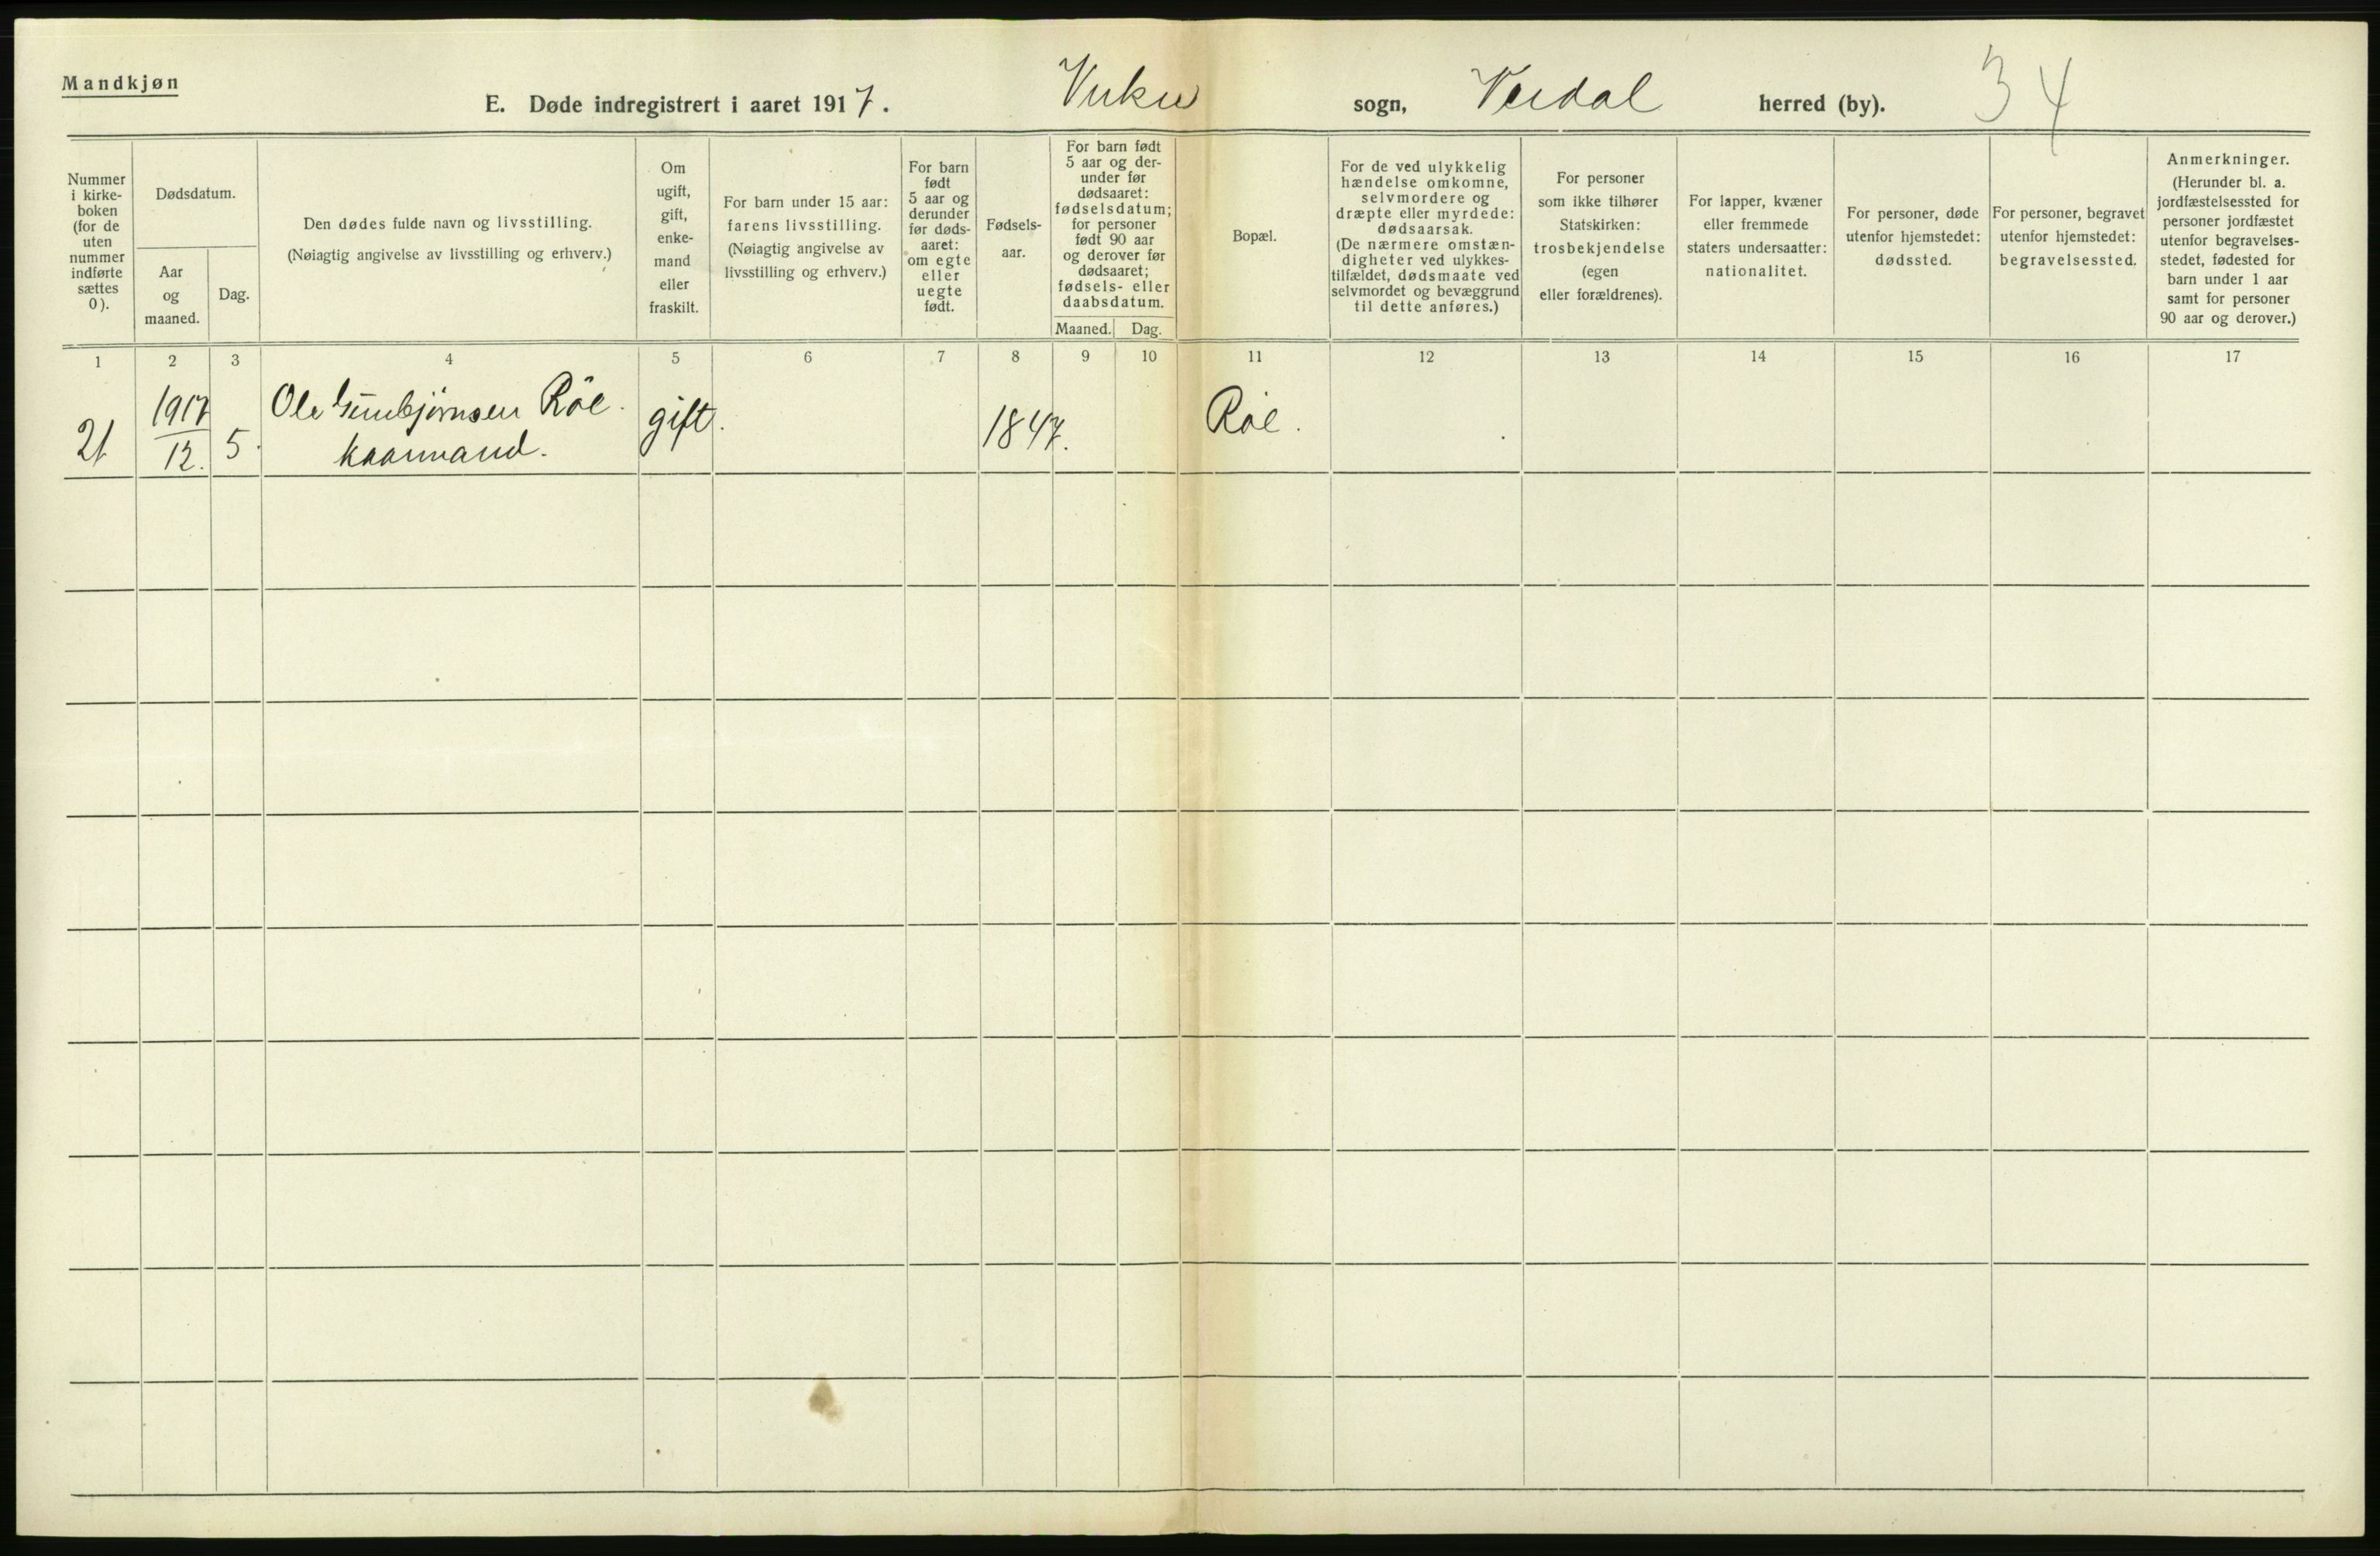 Mandkjøn
E. Døde indregistrert i aaret 1917. Vuku sogn, Verdal herred (by). 34
Nummer
i kirke-
boken
(for de
uten
nummer
indførte
sættes
0).
Dødsdatum.
Aar
og
maaned.
Dag.
Den dødes fulde navn og livsstilling.
(Nøiagtig angivelse av livsstilling og erhverv.)
Om
ugift,
gift,
enke-
mand
eller
fraskilt.
For barn under 15 aar:
farens livsstilling.
(Nøiagtig angivelse av
livsstilling og erhverv.)
For barn
født
5 aar og
derunder
før døds-
aaret:
om egte
eller
uegte
født.
Fødsels-
aar.
For barn født
5 aar og der-
under før
dødsaaret:
fødselsdatum;
for personer
født 90 aar
og derover før
dødsaaret;
fødsels- eller
daabsdatum.
Maaned. Dag.
Bopæl.
For de ved ulykkelig
hændelse omkomne,
selvmordere og
dræpte eller myrdede:
dødsaarsak.
(De nærmere omstæn-
digheter ved ulykkes-
tilfældet, dødsmaate ved
selvmordet og bevæggrund
til dette anføres.)
For personer
som ikke tilhører
Statskirken:
trosbekjendelse
(egen
eller forældrenes).
For lapper, kvæner
eller fremmede
staters undersaatter:
nationalitet.
For personer, døde
utenfor hjemstedet:
dødssted.
For personer, begravet
utenfor hjemstedet:
begravelsessted.
Anmerkninger.
(Herunder bl. a.
jordfæstelsessted for
personer jordfæstet
utenfor begravelses-
stedet, fødested for
barn under 1 aar
samt for personer
90 aar og derover.)
1 2 3 4 5 6 7 8 9 10 11 12 13 14 15 16 17
21 1917 12. 5. Ole Gunbjørnsen Röe. gift. 1847. Röe.
kaarmand.